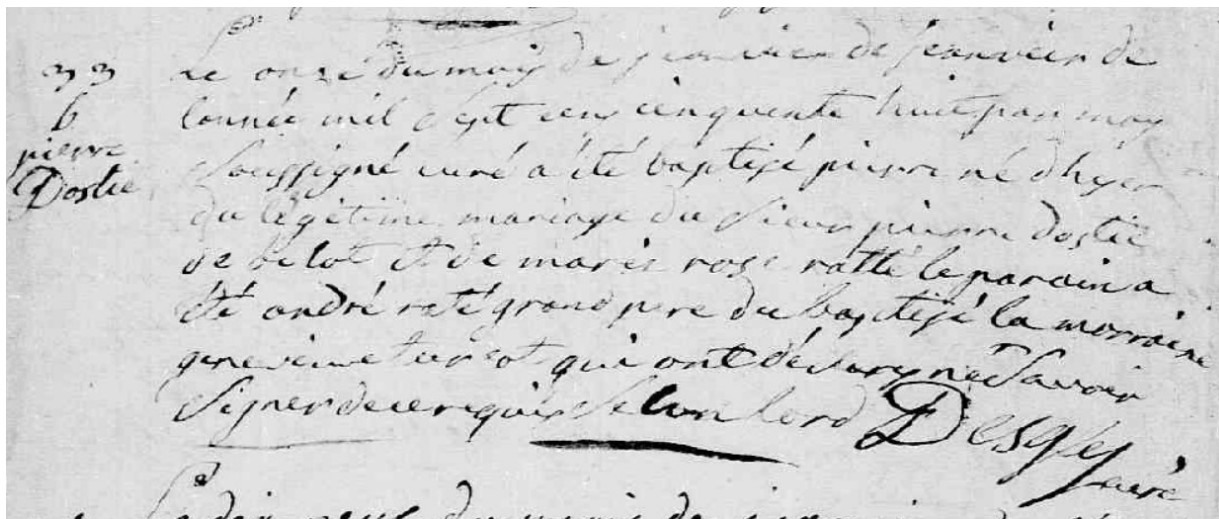 33
b
pierre
Dostie
Le onze du mois de janvier de janvier de
lannée mil sept cens cinquente huit par moy
soussigné curé a été baptisé pierre né d'hyer
du légitime mariage du sieur pierre dostie
de belot et de marie rose ratté le parain a
été andré raté grand pere du baptisé la marraine
genevieve turcot qui ont déclaré ne savoir
signer de ce requis selon lord Desgly
curé
Le dix neuf du mois de